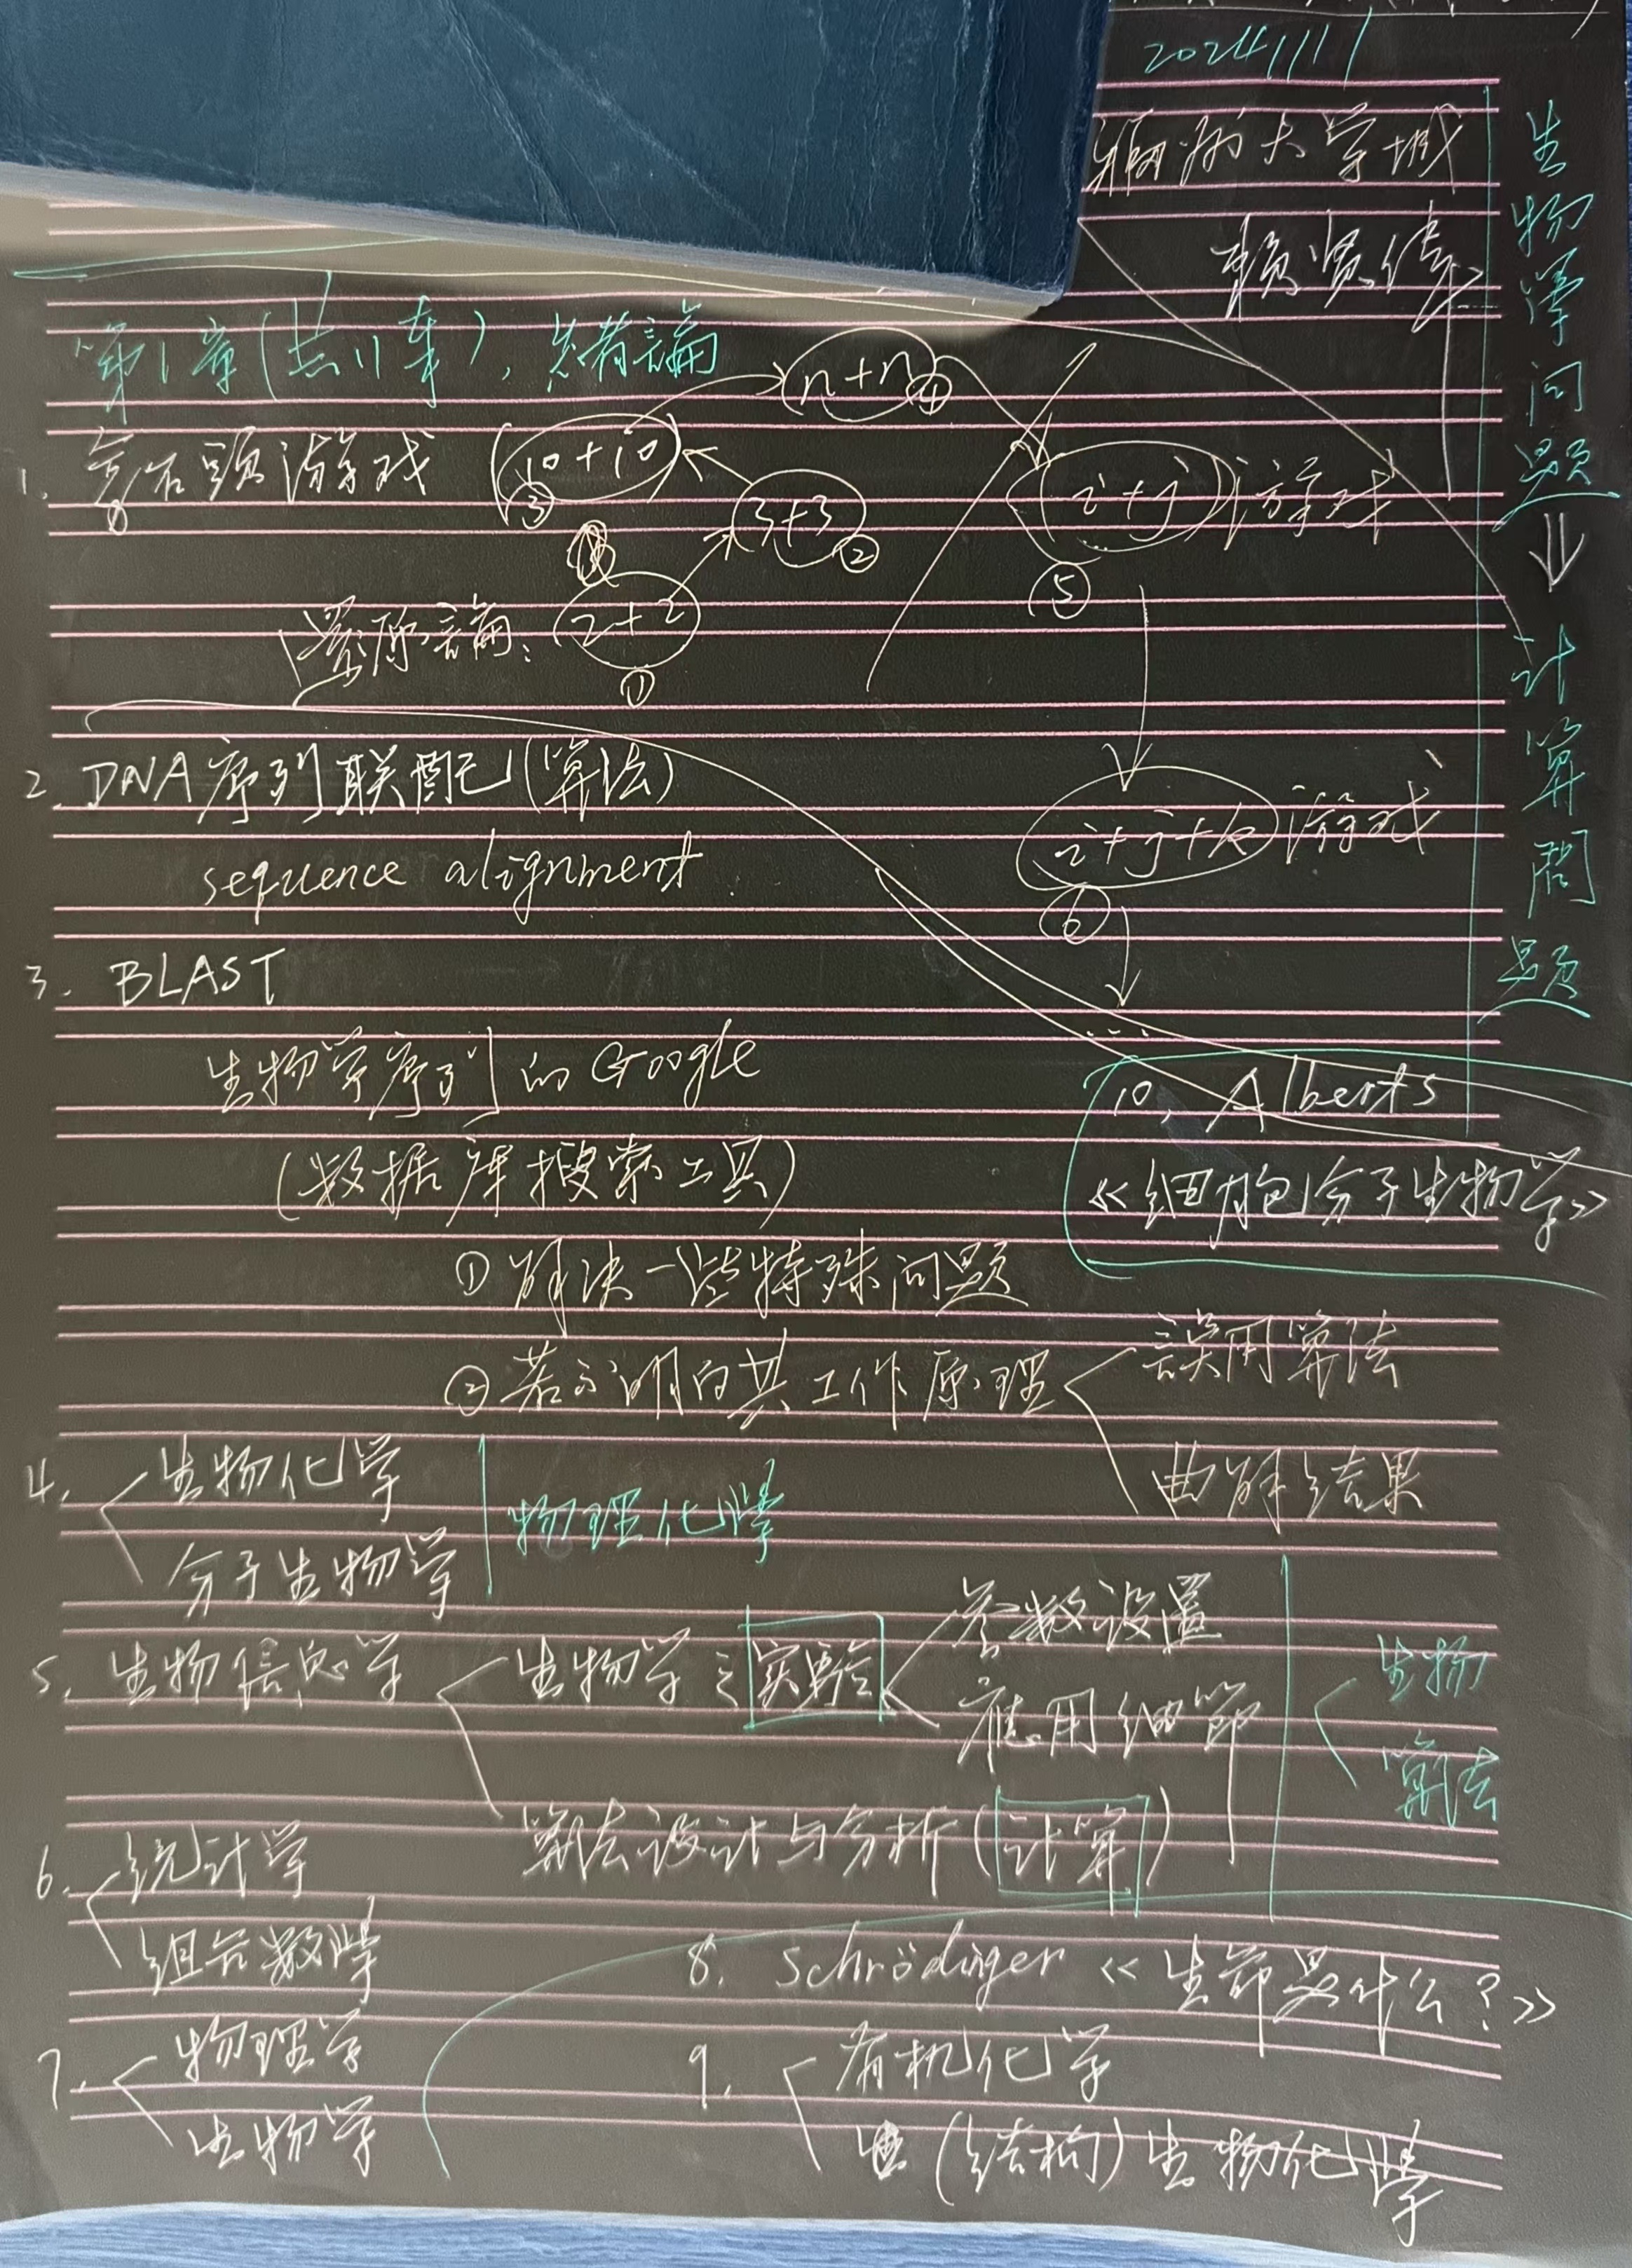 2024/11/1
大学城
生物學问题 ⇒ 计算問题
第1章(共11章),
1. 石頭游戏
10+10 ③
n+n ④
3+3 ②
(i+j)游戏 ⑤
還原論: 2+2 ①
2. DNA序列联配(算法)
sequence alignment
i+j+k 游戏 ⑥
...
3. BLAST
生物学序列的Google
(数据库搜索工具)
① 解决一些特殊问题
② 若不明白其工作原理
誤用算法
曲解结果
10. Alberts
《细胞分子生物学》
4. 生物化学
分子生物学
物理化學
5. 生物信息学
生物学之实验
参数设置
應用细節
算法设计与分析(计算)
生物
算法
6. 统计学
组合数學
7. 物理学
生物学
8. Schrödinger 《生命是什么?》
9. 有机化学
(结构)生物化學